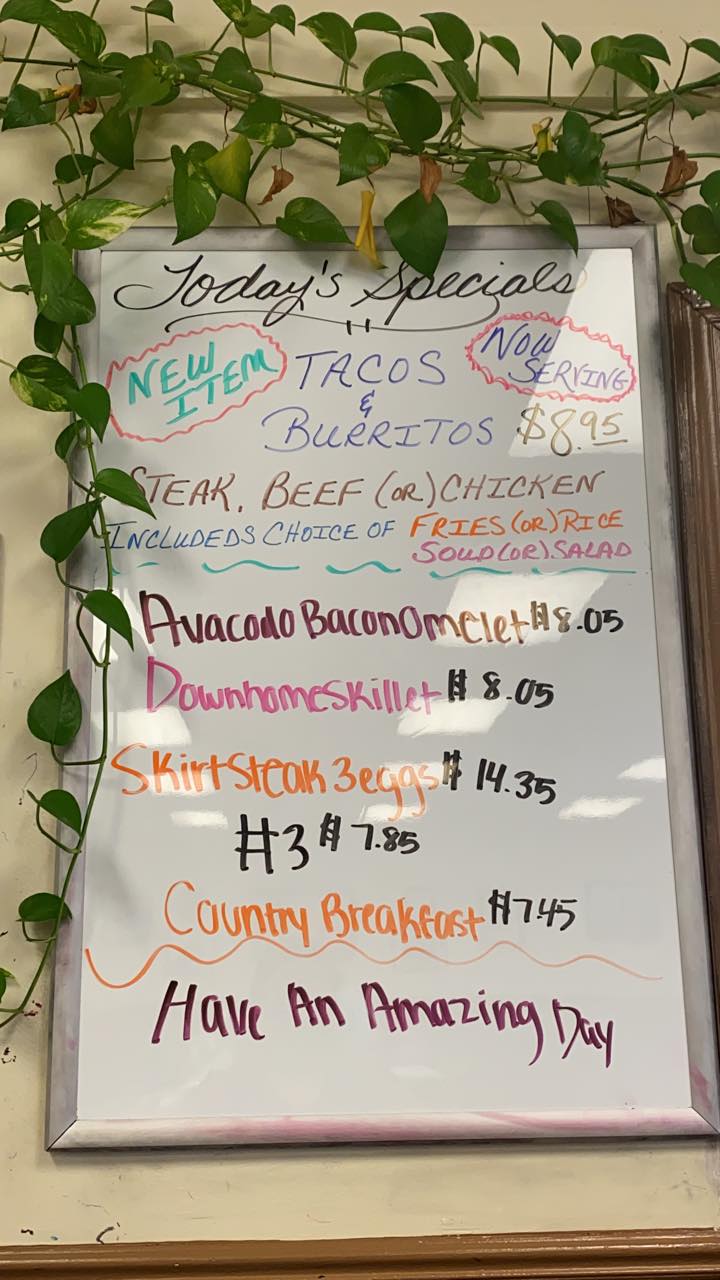 Today's Specials
NEW ITEM
TACOS
&
BURRITOS $8.95
NOW SERVING
STEAK, BEEF (OR) CHICKEN
INCLUDEDS CHOICE OF FRIES (OR) RICE
SOUP (OR) SALAD
Avacodo Bacon Omelet $8.05
Downhome Skillet $8.05
Skirt Steak 3 eggs $14.35
#3 $7.85
Country Breakfast $7.45
Have An Amazing Day